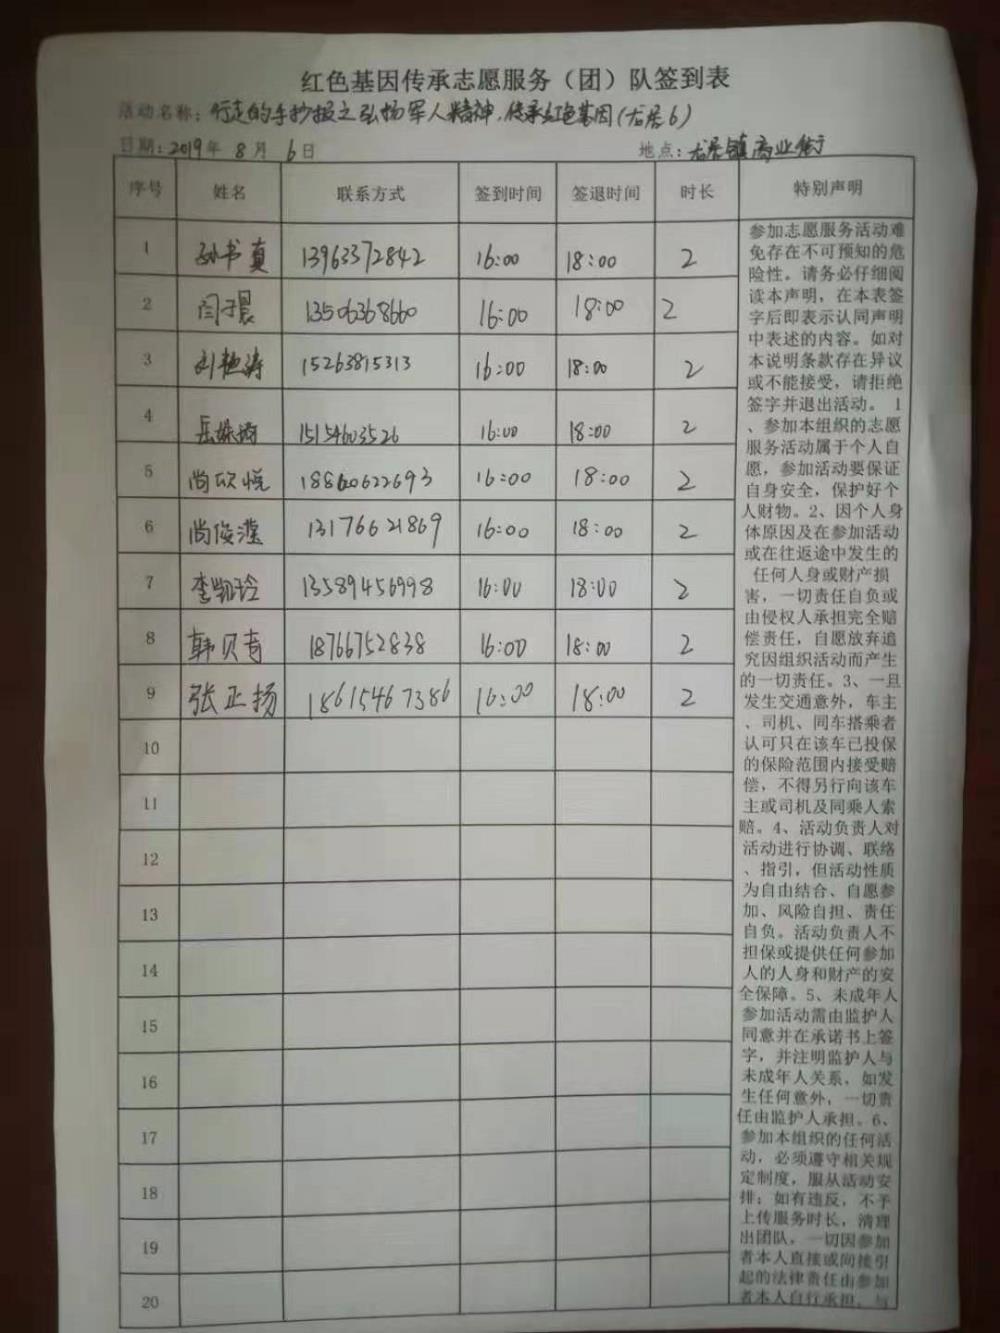 红色基因传承志愿服务（团）队签到表
活动名称：行走的手抄报之弘扬军人精神，传承红色基因（尤居6）
日期：2019年 8月 6日 地点：尤居镇商业街
序号 姓名 联系方式 签到时间 签退时间 时长 特别声明
1 孙书真 13963372842 16:00 18:00 2
2 闫子晨 13506368660 16:00 18:00 2
3 刘艳涛 15263815313 16:00 18:00 2
4 15154603526 16:00 18:00 2
5 尚欣悦 18860622693 16:00 18:00 2
6 尚俊滢 13176621869 16:00 18:00 2
7 李凯玲 13589456998 16:00 18:00 2
8 韩贝奇 18766752838 16:00 18:00 2
9 张正扬 18615467386 16:00 18:00 2
10
11
12
13
14
15
16
17
18
19
20
参加志愿服务活动难
免存在不可预知的危
险性。请务必仔细阅
读本声明，在本表签
字后即表示认同声明
中表述的内容。如对
本说明条款存在异议
或不能接受，请拒绝
签字并退出活动。 1
、参加本组织的志愿
服务活动属于个人自
愿，参加活动要保证
自身安全，保护好个
人财物。2、因个人身
体原因及在参加活动
或在往返途中发生的
任何人身或财产损
害，一切责任自负或
由侵权人承担完全赔
偿责任，自愿放弃追
究因组织活动而产生
的一切责任。3、一旦
发生交通意外，车主
、司机、同车搭乘者
认可只在该车已投保
的保险范围内接受赔
偿，不得另行向该车
主或司机及同乘人索
赔。4、活动负责人对
活动进行协调、联络
、指引，但活动性质
为自由结合、自愿参
加、风险自担、责任
自负。活动负责人不
担保或提供任何参加
人的人身和财产的安
全保障。5、未成年人
参加活动需由监护人
同意并在承诺书上签
字，并注明监护人与
未成年人关系，如发
生任何意外，一切责
任由监护人承担。6、
参加本组织的任何活
动，必须遵守相关规
定制度，服从活动安
排；如有违反，不予
上传服务时长，清理
出团队。一切因参加
者本人直接或间接引
起的法律责任由参加
者本人自行承担，与